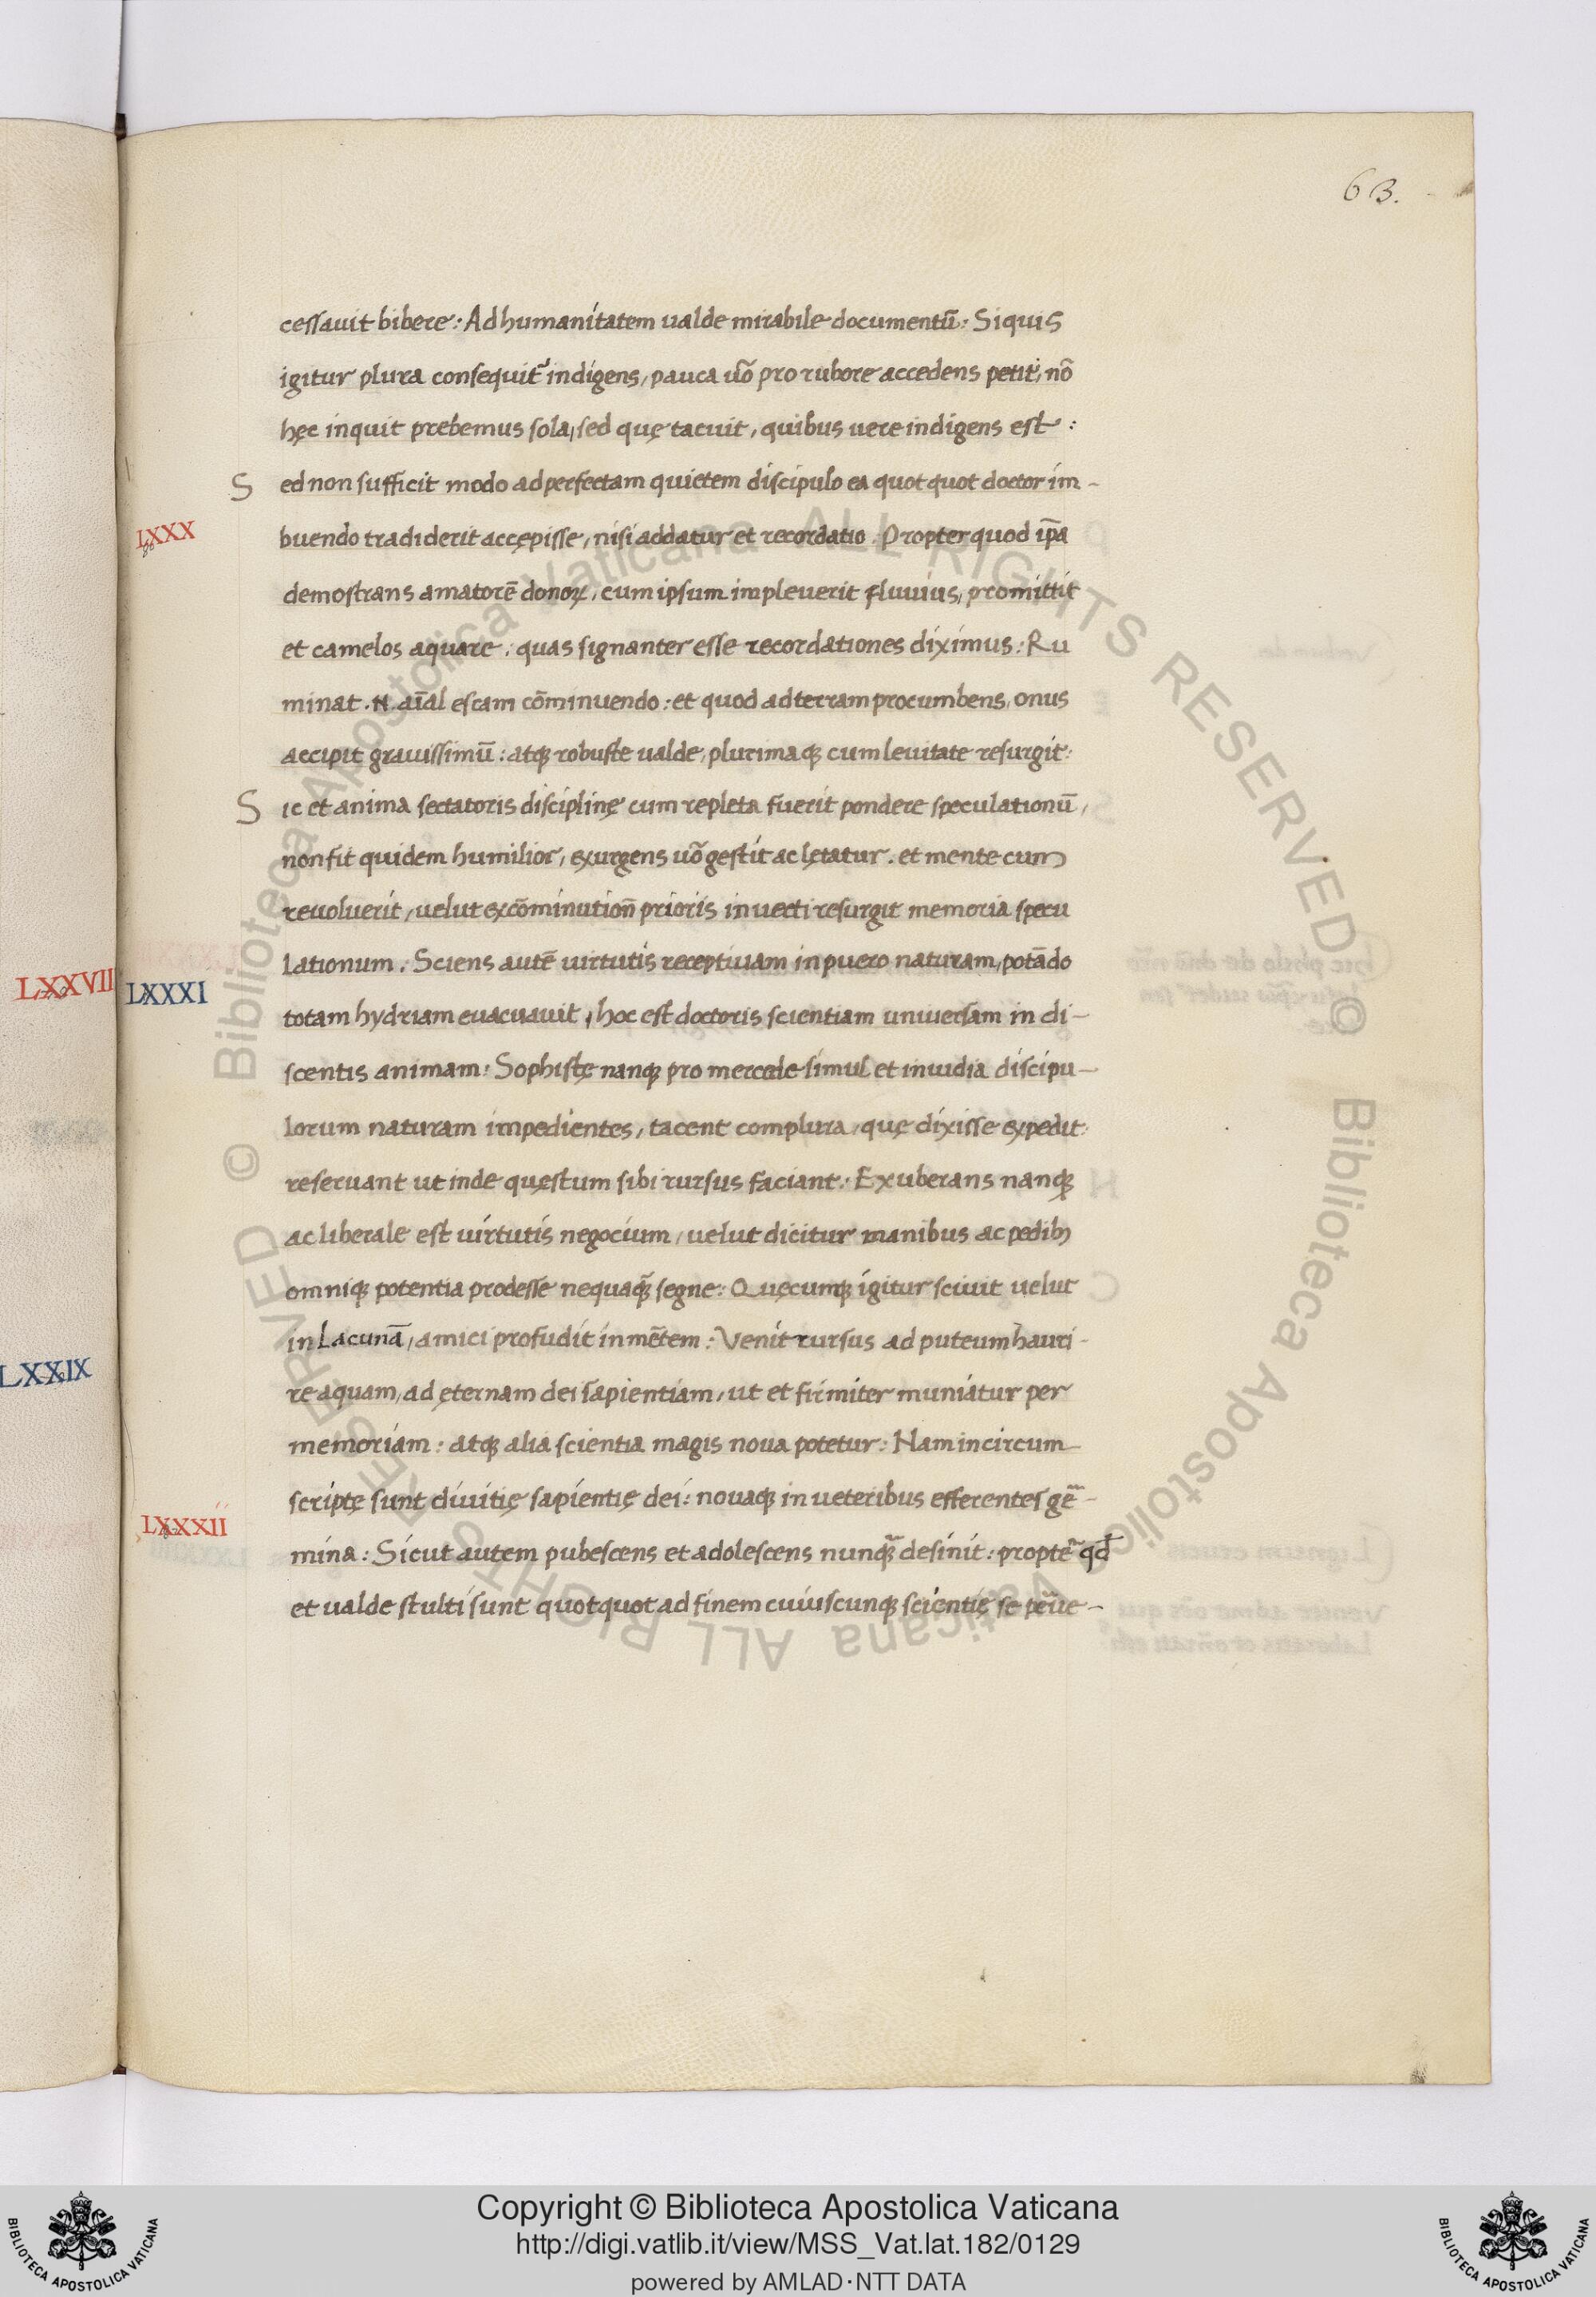 63.
cessauit bibere: Ad humanitatem ualde mirabile documentū: Siquis
igitur plura consequit᷑ indigens, pauca uo᷑ pro rubore accedens petit, nō
hęc inquit prebemus sola, sed quę tacuit, quibus uere indigens est:
S ed non sufficit modo ad perfectam quietem discipulo ea quot quot doctor im-
LXXX
buendo tradiderit accępisse, nisi addatur et recordatio. Propter quod ip̄a
demostrans amatorē donoꝝ, cum ipsum impleuerit fluuius, promittit
et camelos aquare: quas signanter esse recordationes diximus: Ru
minat .N. aīal escam cōminuendo: et quod ad terram procumbens, onus
accipit grauissimū: atqꝫ robuste ualde, plurimaqꝫ cum leuitate resurgit:
S ic et anima sectatoris disciplinę cum repleta fuerit pondere speculationū,
non fit quidem humilior, exurgens uo᷑ gestit ac lętatur. et mente cum
reuoluerit, uelut ex cōminution̄ prioris inuecti resurgit memoria specu
lationum: Sciens autē uirtutis receptiuam in puero naturam, potādo
LXXVII LXXXI
totam hydriam euacuauit, hoc est doctoris scientiam uniuersam in di-
scentis animam: Sophistę nanqꝫ pro mercede simul et inuidia discipu-
lorum naturam impedientes, tacent complura, quę dixisse expedit:
reseruant ut inde quęstum sibi rursus faciant: Exuberans nanqꝫ
ac liberale est uirtutis negocium, uelut dicitur manibus ac pedibꝫ
omniqꝫ potentia prodesse nequaqꝫ̄ segne: Quęcumqꝫ igitur sciuit uelut
in Lacunā, amici profudit in mētem: Venit rursus ad puteum hauri-
LXXIX
re aquam, ad ęternam dei sapientiam, ut et firmiter muniatur per
memoriam: atqꝫ alia scientia magis noua potetur: Nam incircum
scriptę sunt diuitię sapientię dei: nouaqꝫ in ueteribus efferentes gē-
LXXXII
mina: Sicut autem pubescens et adolescens nunqꝫ̄ desinit: propte᷑ qd̄
et ualde stulti sunt quotquot ad finem cuiuscunqꝫ scientię se pe᷑ue-
© Biblioteca Apostolica Vaticana ALL RIGHTS RESERVED © Biblioteca Apostolica Vaticana ALL RIGHTS RESERVED
Copyright © Biblioteca Apostolica Vaticana
http://digi.vatlib.it/view/MSS_Vat.lat.182/0129
powered by AMLAD·NTT DATA
BIBLIOTECA APOSTOLICA VATICANA
BIBLIOTECA APOSTOLICA VATICANA